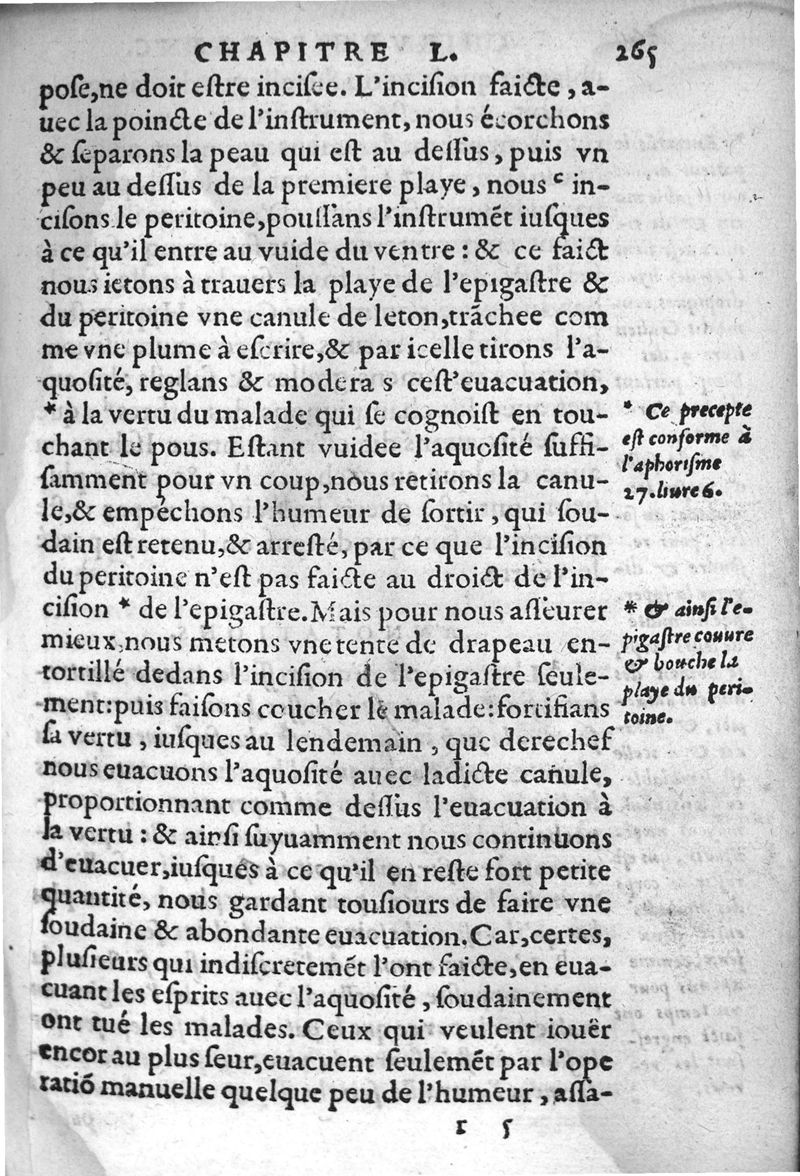 CHAPITRE L. 265
poſe,ne doit eſtre inciſee. L'inciſion faicte, a-
uec la poincte de l'inſtrument, nous écorchons
& ſeparons la peau qui eſt au deſſus, puis vn
peu au deſſus de la premiere playe, nous ᶜ in-
ciſons le peritoine, pouſſans l'inſtrumẽt iuſques
à ce qu'il entre au vuide du ventre : & ce faict
nous ietons à trauers la playe de l'epigaſtre &
du peritoine vne canule de leton, trãchee com
me vne plume à eſcrire, & par icelle tirons l'a-
quoſité, reglans & modera s ceſt'euacuation,
* à la vertu du malade qui ſe cognoiſt en tou-
chant le pous. Eſtant vuidee l'aquoſité ſuffi-
ſamment pour vn coup, nous retirons la canu-
le, & empéchons l'humeur de ſortir, qui ſou-
dain eſt retenu, & arreſté, par ce que l'inciſion
du peritoine n'eſt pas faicte au droict de l'in-
ciſion * de l'epigaſtre. Mais pour nous aſſeurer
mieux, nous metons vne tente de drapeau en-
tortillé dedans l'inciſion de l'epigaſtre ſeule-
ment: puis faiſons coucher le malade: fortifians
ſa vertu, iuſques au lendemain, que derechef
nous euacuons l'aquoſité auec ladicte canule,
proportionnant comme deſſus l'euacuation à
la vertu : & ainſi ſuyuamment nous continuons
d'euacuer, iuſques à ce qu'il en reſte fort petite
quantité, nous gardant touſiours de faire vne
ſoudaine & abondante euacuation. Car, certes,
pluſieurs qui indiſcretemẽt l'ont faicte, en eua-
cuant les eſprits auec l'aquoſité, ſoudainement
ont tué les malades. Ceux qui veulent iouër
encor au plus ſeur, euacuent ſeulemẽt par l'ope
ratiõ manuelle quelque peu de l'humeur, aſſa-
r 5
* Ce precepte
eſt conforme à
l'aphoriſme
27. liure 6.
* & ainſi l'e-
pigaſtre couure
& bouche la
playe du peri-
toine.